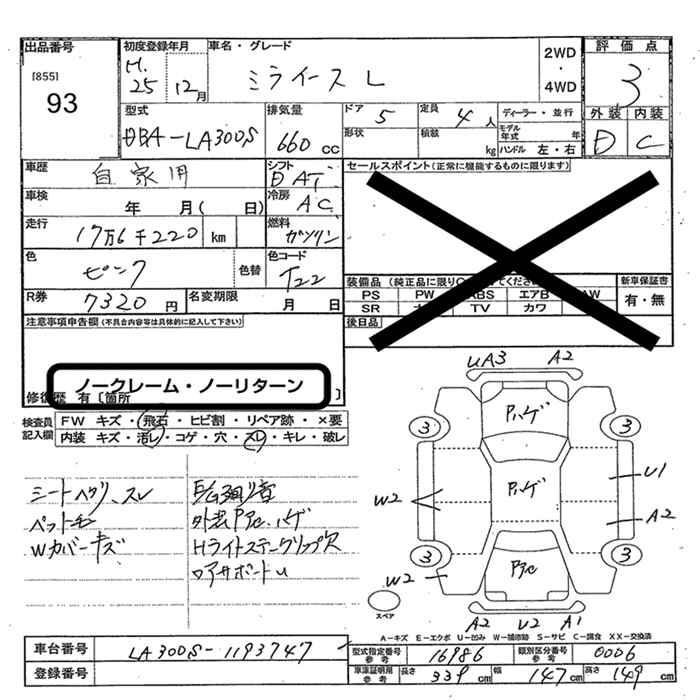 出品番号
[855]
93
初度登録年月
H.
25
12月
車名・グレード
ミライース L
2WD
・
4WD
評価点
3
外装 内装
D C
型式
DBA-LA300S
排気量
660 CC
ドア 5
形状
定員 4人
積載 kg
ディーラー・並行
モデル年式 年
ハンドル 左・右
車歴
自家用
シフト
AT
車検
年 月( 日)
冷房
AC
走行
17万6千220 km
燃料
ガソリン
色
ピンク
色替
色コード
T22
R券
7320 円
名変期限
月 日
セールスポイント(正常に機能するものに限ります)
装備品 (純正品に限り
新車保証書
PS PW ABS エアB AW
SR TV カワ
有・無
後日品
注意事項申告欄(不具合内容等は具体的に記入して下さい)
ノークレーム・ノーリターン
修復歴 有 [箇所 ]
検査員
記入欄
FW キズ・飛石・ヒビ割・リペア跡・×要
内装 キズ・汚レ・コゲ・穴・スレ・キレ・破レ
シートヘタリ、スレ
Wカバーキズ
Hライトステークリップ欠
UA3 A2
Pハゲ
3 3
Pハゲ
W2
U1
A2
3 3
W2
スペア
A2 U2 A1
A-キズ E-エクボ U-凹み W-補修跡 S-サビ C-腐食 XX-交換済
車台番号
LA300S-1193747
登録番号
型式指定番号
参考
16986
類別区分番号
参考
0006
車庫証明用
参考
長さ 339 cm
幅 147 cm
高さ 149 cm